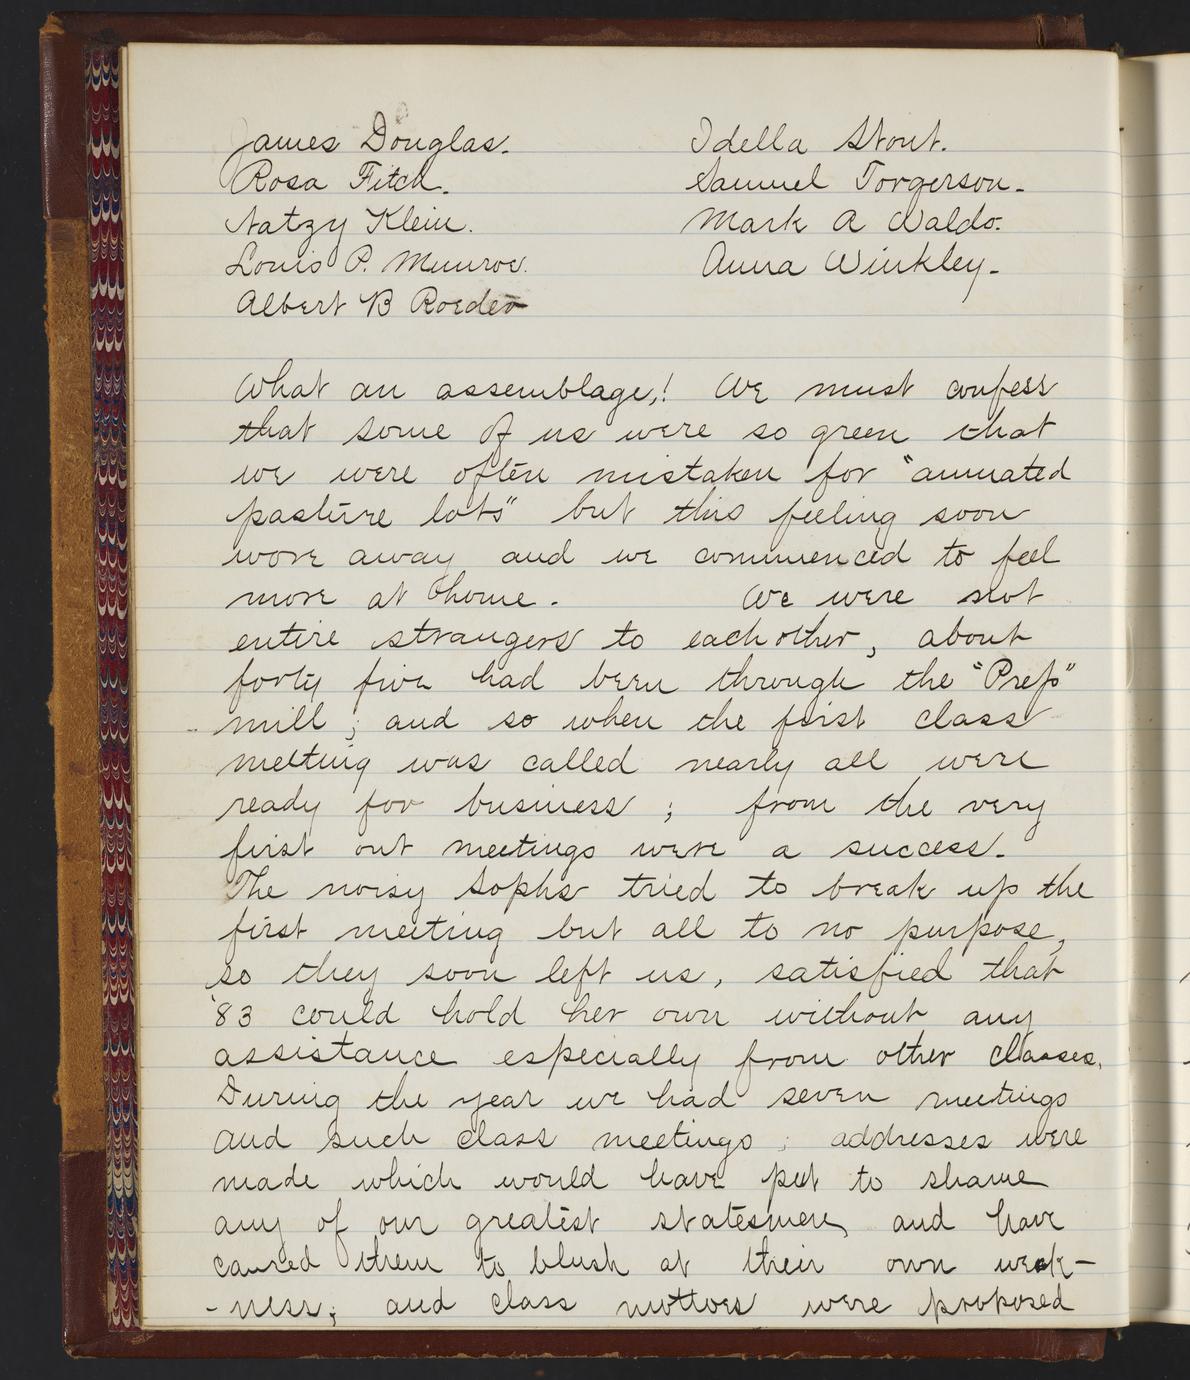 James Douglas.
Rosa Fitch.
Natzy Klein.
Louis P. Munroe.
Albert B Roeder
Idella Stout.
Samuel Torgerson.
Mark A Waldo.
Anna Winkley.
What an assemblage,! We must confess
that some of us were so green that
we were often mistaken for "animated
pasture lots" but this feeling soon
wore away and we commenced to feel
more at home. We were not
entire strangers to each other, about
forty five had been through the "Prep"
mill; and so when the first class
meeting was called nearly all were
ready for business; from the very
first out meetings were a success.
The noisy Sophs tried to break up the
first meeting but all to no purpose,
so they soon left us, satisfied that
'83 could hold her own without any
assistance especially from other classes.
During the year we had seven meetings
and such class meetings; addresses were
made which would have put to shame
any of our greatest statesmen, and have
caused them to blush at their own weak-
-ness; and class mottoes were proposed